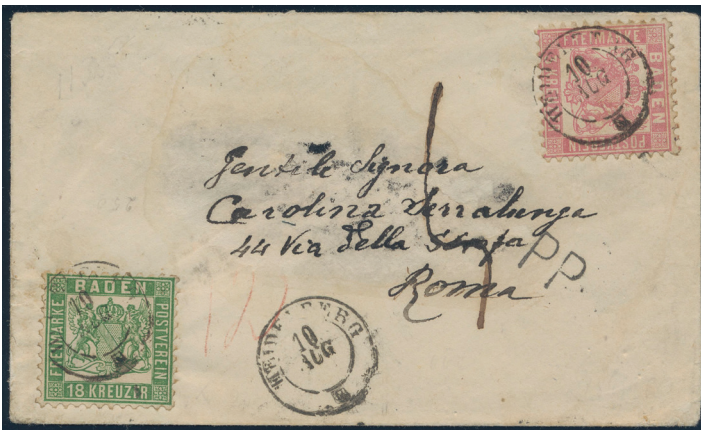 FREIMARKE
BADEN
POSTVEREIN
HEIDELBERG
10
AUG
Gentile Signora
Carolina Serralunga
44 Via della
Roma
P.P.
BADEN
FREIMARKE
POSTVEREIN
18 KREUZER
10
HEIDELBERG
10
AUG